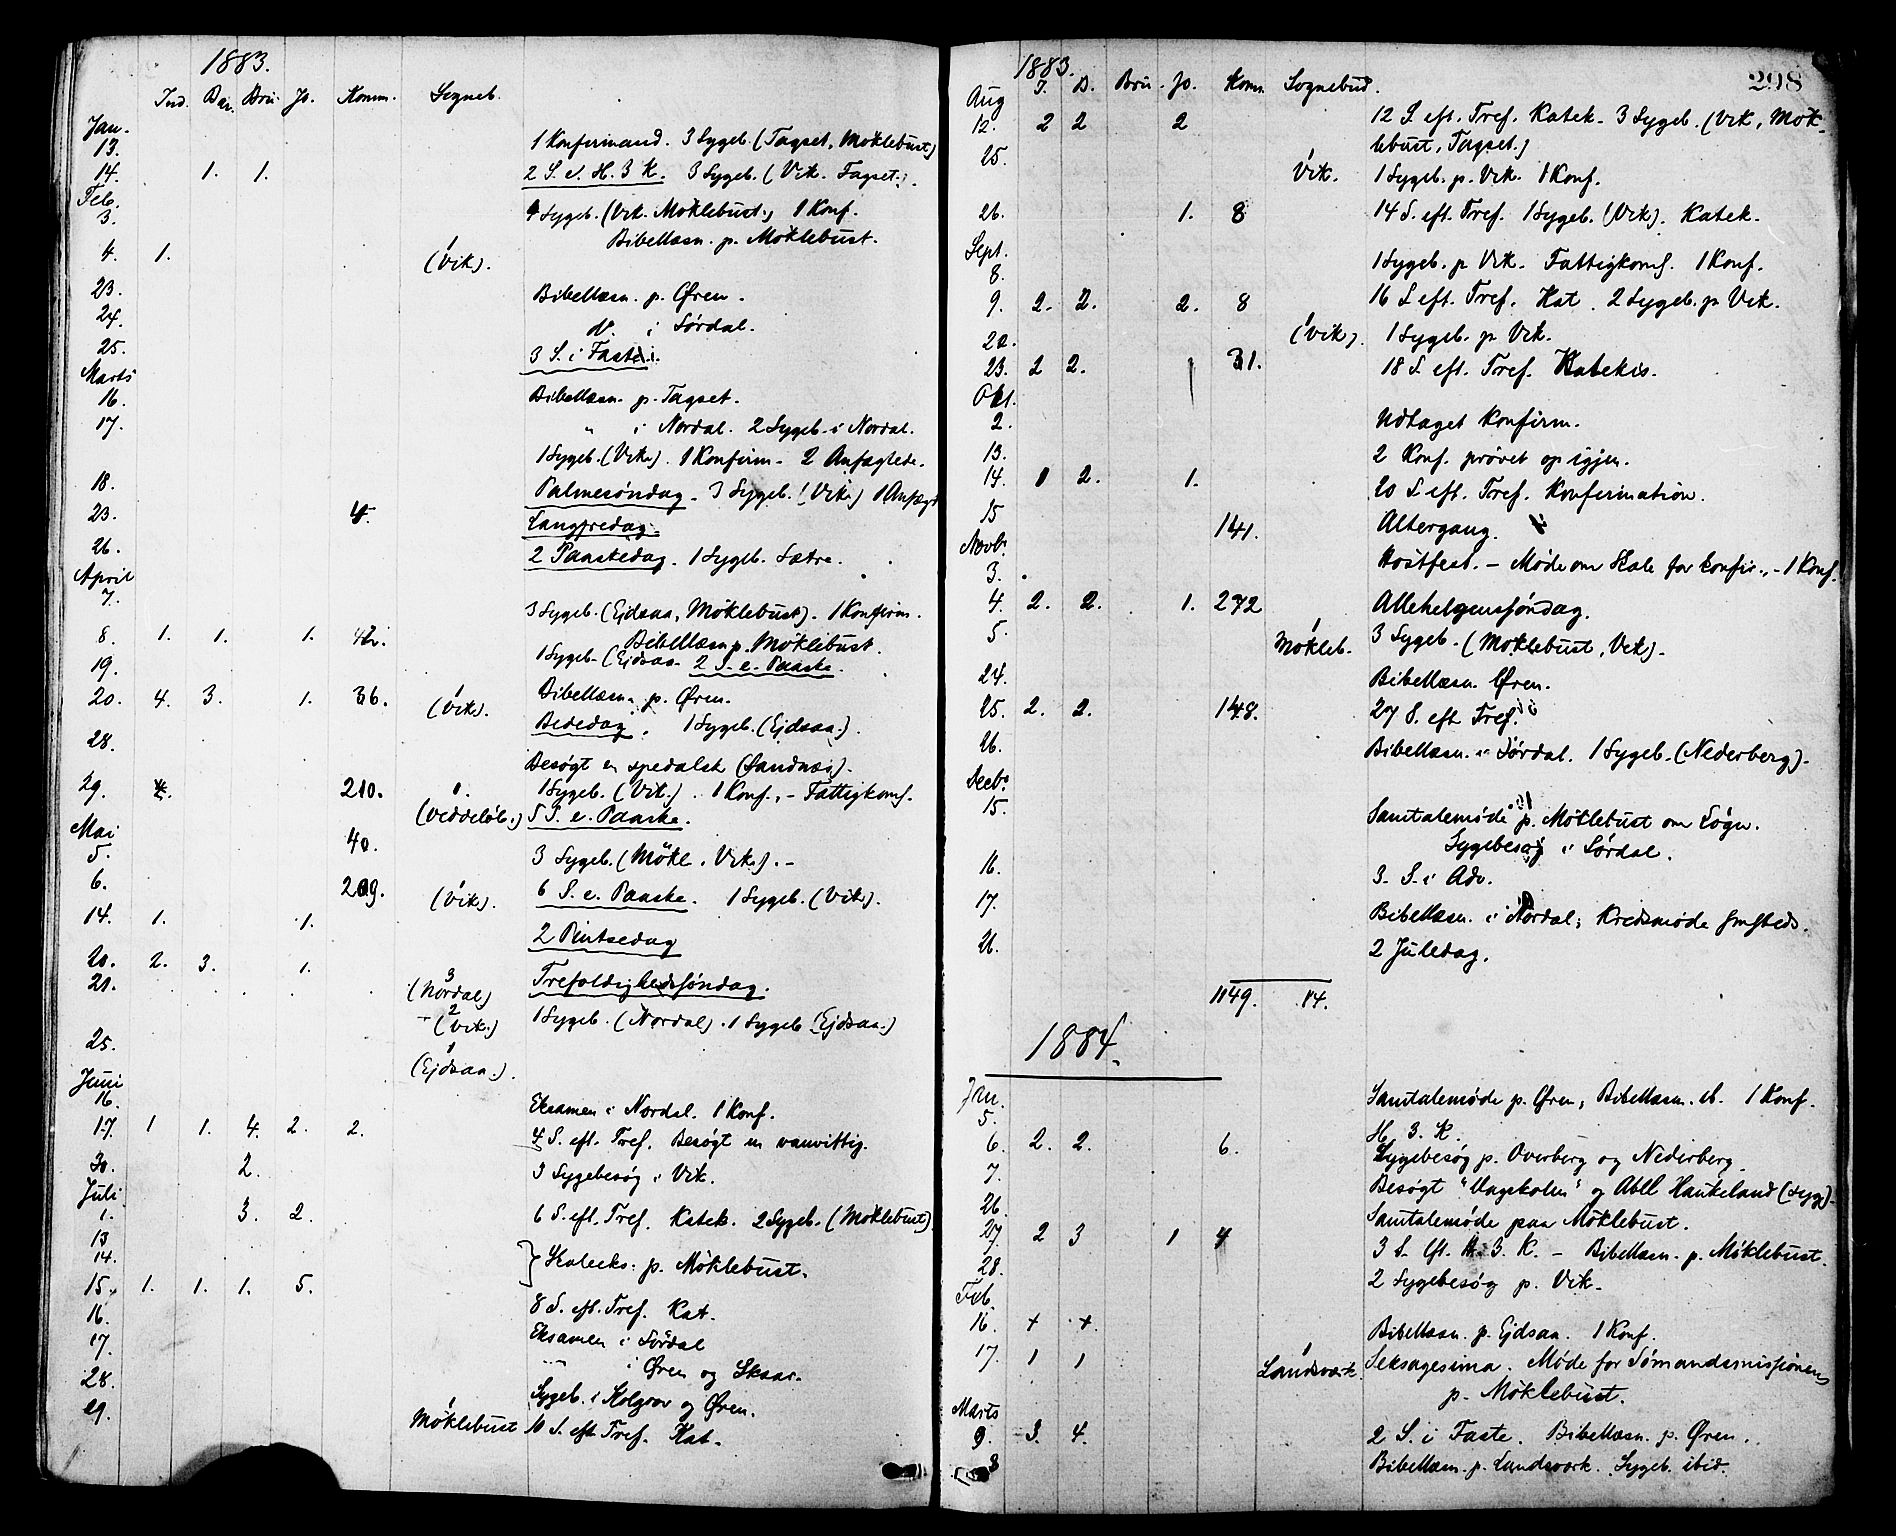 1883.
Ind. Bar. Bru. Jo. Komm. Sogneb.
Jan.
13. 1 Konfirmand. 3 Sygeb. (Tagset, Møklebust)
14. 1. 1. 2 S. e. H. 3 K. 3 Sygeb. (Vik. Tagset.).
Feb.
3. 4 Sygeb. (Vik. Møklebust.) 1 Konf.
Bibellæsn. p. Møklebust.
4. 1. 1 (Vik).
23. Bibellæsn. p. Øren.
24. do. i Sørdal.
25. 3 S. i Faste.
Marts
16. Bibellæsn. p. Tagset.
17. " i Nordal. 2 Sygeb. i Nordal.
1 Sygeb. (Vik). 1 Konfirm. 2 Anfægtede.
18. Palmesøndag. 3 Sygeb. (Vik) 1 Anfægt
23. Langfredag.
26. 2 Paaskedag. 1 Sygeb. Sætre.
April
7. 3 Sygeb. (Ejdsaa, Møklebust). 1 Konfirm.
Bibellæsn p. Møklebust.
8. 1. 1. 1. 1 Sygeb. (Ejdsaa. 2 S. e. Paaske.
19. Bibellæsn. p. Øren.
20. 4. 3. 1. 36. 1 (Vik). Bededag. 1 Sygeb. (Ejdsaa.).
28. Besøgt en spedalsk (Sandnæs).
1 Sygeb. (Vik.). 1 Konf. - Fattigkoms.
29. 210. 1. (Veddeløb.) 5 S. e. Paaske.
Mai
5. 40. 3 Sygeb. (Møkl. Vik). -
6. 209. 1 (Vik). 6 S. e. Paaske. 1 Sygeb. (Vik).
14. 1. 1. 2 Pintsedag
20. 2. 3. 1. Trefoldighedssøndag.
21. 3 (Nordal) 1 Sygeb. (Nordal). 1 Sygeb (Ejdsaa.)
2 (Vik.)
25. 1 (Ejdsaa.).
Juni
16. Eksamen i Nordal. 1 Konf.
17. 1 1. 4. 2. 2. 4 S. eft. Tref. Besøgt en vanvittig.
30. 2. 3 Sygebesøg i Vik.
Juli
1. 3. 2. 6 S. eft. Tref. Katek. 2 Sygeb. (Møklebust)
13
14. } Katecks. p. Møklebust.
15. 1. 1. 1. 5. 8 S. eft. Tref. Kat.
16. Eksamen i Sørdal
17. " i Øren og Skaar.
28. Sygeb. i Kolgrov og Øren.
29. 1 Møklebust 10 S. eft Tref. Kat.
298
1883.
I. D. Bru. Jo. Komn. Sognebud.
Aug
12. 2 2 2 12 S. eft. Tref. Katek. 3 Sygeb. (Vik, Møk-
lebust, Tagset.)
25. 1 Vik. 1 Sygeb. p. Vik. 1 Konf.
26. 1. 8 14 S. eft. Tref. 1 Sygeb. (Vik). Katek.
Sept.
8. 1 Sygeb. p Vik. Fattigkoms. 1 Konf.
9. 2. 2. 2. 8 16 S eft. Tref. Kat. 2 Sygeb. p Vik.
22. 1 (Vik). 1 Sygeb. p Vik.
23. 2 2. 1 31. 18 S. eft. Tref. Katekis.
Okt.
2. Udtaget Konfirm.
13. 2 Konf. prøvet op igjen.
14. 1 2. 1. 20 S eft. Tref. Konfirmation.
15 141. Altergang.
Novbr
3. Høstfest. - Møde om Skole for konfir. - 1 Konf.
4. 2. 2. 1. 272 Allehelgenssøndag.
5. 1 Møkleb. 3 Sygeb. (Moklebust, Vik).
24. Bibellæsn. Øren.
25. 2. 2. 148. 27 S. eft Tref.
26. Bibellæsn. i Sørdal. 1 Sygeb. (Nederberg).
Decbr
15. Samtalemøde p. Møklebust om Løgn.
Sygebesøg i Sørdal.
16. 3. S. i Adv.
17. Bibellæsn. i Nordal; Kredsmøde smsteds.
26. 2 Juledag.
1149. 14.
1884.
Jan.
5. Samtalemøde p. Øren; Bibellæsn. ib. 1 Konf.
6. 2. 2. 6. H. 3. K.
7. Sygebesøg p. Overberg og Nederberg.
Besøgt "Vagskolen" og Abel Haukeland (syg).
26. Samtalemøde paa Møklebust.
27. 2 3 1 4 3 S. eft. H. 3. K. - Bibellæsn. p. Møklebust.
28. 2 Sygebesøg p. Vik.
Feb.
16. + + Bibellæsn. p. Ejdsaa. 1 Konf.
17. 1 1 1 Landsværk. Seksagesima. Møde for Sømandsmissionen
p. Møklebust.
Marts
9. 3. 4. 2 S. i Faste. Bibellæsn. p. Øren.
Bibellæsn. p. Landsværk. Sygeb. ibid.